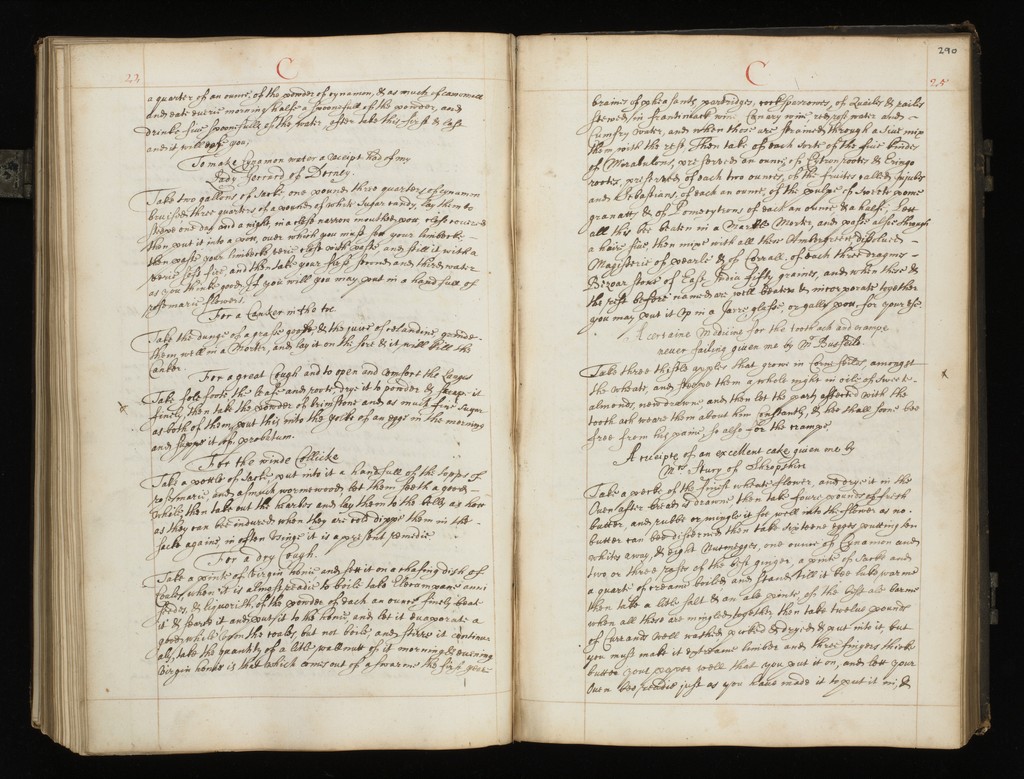 22
C
a quarter of an ounce, of the powder of cynamon, & as much of
and eate everie morning halfe a spoonefull of the powder, and
drinke five spoonefulls of the water, after take this first & last
and it will you,
To make Cynamon water a receipt had of my
Lady Gerrard of Dorney.
Take two gallons of Sacke one pound three quarters of Cynamon
bruised three quarters of a pound of white Sugar candy, lay them to
steepe one day and a night, in a close narrow mouthed pott close covered
then put it into a pott, over which you must sett your limbecke
then paste your limbecke verie close with paste and still it with a
verie soft fire, and then take your first second and third water
as you think good. If you will you may put in a handfull of
rosemarie flowers.
For a Canker in the toe
Take the dunge of a goose, & the juice of celandine grinde
them well in a Morter, and lay it on the sore & it will kill the
Canker.
For a great Cough and to open and comfort the Lunges
Take fole foote the leafe and roote drye it to powder & it
finely, then take the powder of brimstone and as much fine Sugar
as both of them, put this into the yolke of an egge in the morning
and suppe it off. probatum.
For the winde Collicke
Take a pottle of Sacke put into it a handfull of the topps of
rosemarie, and as much wormewood, let them seeth a good
while, then take out the hearbes and lay them to the belly as hott
as they can bee indured when they are cold dippe them in the
sacke againe, in often doinge it is a present remedie
For a dry Cough.
Take a pinte of Virgin honie and sett it on a chafing dish of
Coales, when it is almost readie to boile take Elecampane anni
seedes, & liquorish, of the powder of each an ounce finely beat
it & searce it and put it to the honie, and let it evaporate a
good while upon the coales, but not boile, and stirre it continu
ally, take the quantity of a litle wallnutt of it morning & evening
Virgin honie is that which comes out of a swarme the first yeare
290
C
25
braines of pheasants partridges, cocksparrowes, of Quailes & railes
stewed in Canary wine, redrose water and
Cumfry water, and when these are strained through a sive mix
them with the rest. Then take of each sorte of the five kindes
of Mirabulons, preserved an ounce, of Cytron rootes & Eringo
rootes, preserved of each two ounces, of the fruites called Jujubs
and Sebastians, of each an ounce, of the pulpe of sweete pome
granatts & of Pomecytrons of each an ounce & a halfe; Lett
all this bee beaten in a Marble Morter, and passe alsoe through
a haire sive, then mixe with all these Ambergreece dissolved
Magisterie of pearle & of Corrall, of each three dragmes
Bezoar stone of East India fifty graines, and when these &
the rest before named are well beaten & incorporate together
you may put it up in a Jarre glasse, or gally pott, for your use.
A certaine Medicine for the tooth ach and crampe
never failing given me by Mr
Take three thistle apples that grow in Corne feildes, amongst
the wheate, and steepe them a whole night in oile of sweete
almonds, new drawne and then let the party affected with the
tooth ach weare them about him instantly, & hee shall soone bee
free from his paine, so also for the crampe.
A receipte of an excellent cake given me by
Mrs Avery of Shropshire
Take a pecke of the finest wheate flower, and drye it in the
Oven after bread is drawne then take foure pounds of fresh
butter, and rubbe or mingle it soe well into the flower as no
butter can bee discerned then take sixteene egges putting ten
whites away, & eight Nutmegges, one ounce of Cynamon and
two or three races of the best ginger, a pinte of Sacke and
a quart of creame boiled and stand till it bee luke warme
then take a litle salt & an ale pinte, of the best ale barme
when all these are mingled together then take twelve pounds
of Currance well washed picked & dryed & put into it, but
you must make it very limber and three fingers thicke
butter your paper well that you put it on, and lett your
Oven bee readie just as you have made it to put it in, &